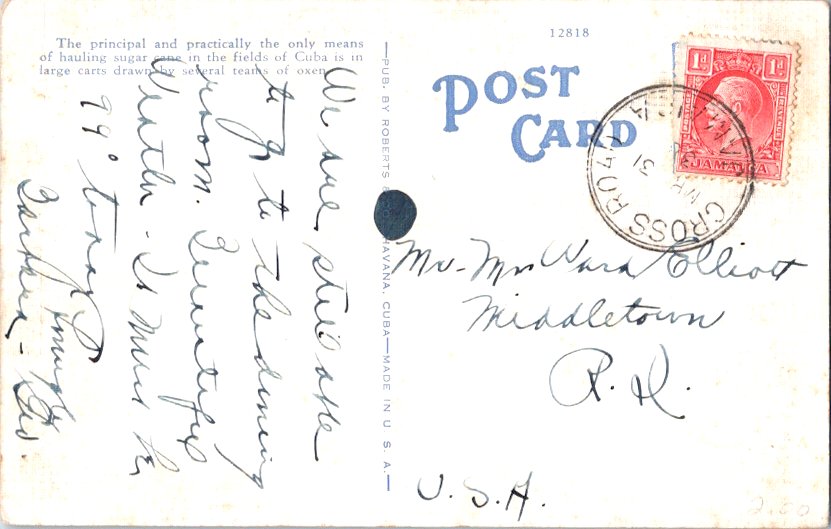 The principal and practically the only means
of hauling sugar cane in the fields of Cuba is in
large carts drawn by several teams of oxen.
12818
POST
CARD
PUB. BY ROBERTS & HAVANA, CUBA—MADE IN U. S. A.
1d 1d
JAMAICA
CROSS ROADS
JAMAICA
MR 31
We are still able
to go to the dining
room. Beautiful
Weather - It must be
99° today
Barbara
Mr - Mrs Ward Elliott
Middletown
R. I.
U.S.A.
2.00